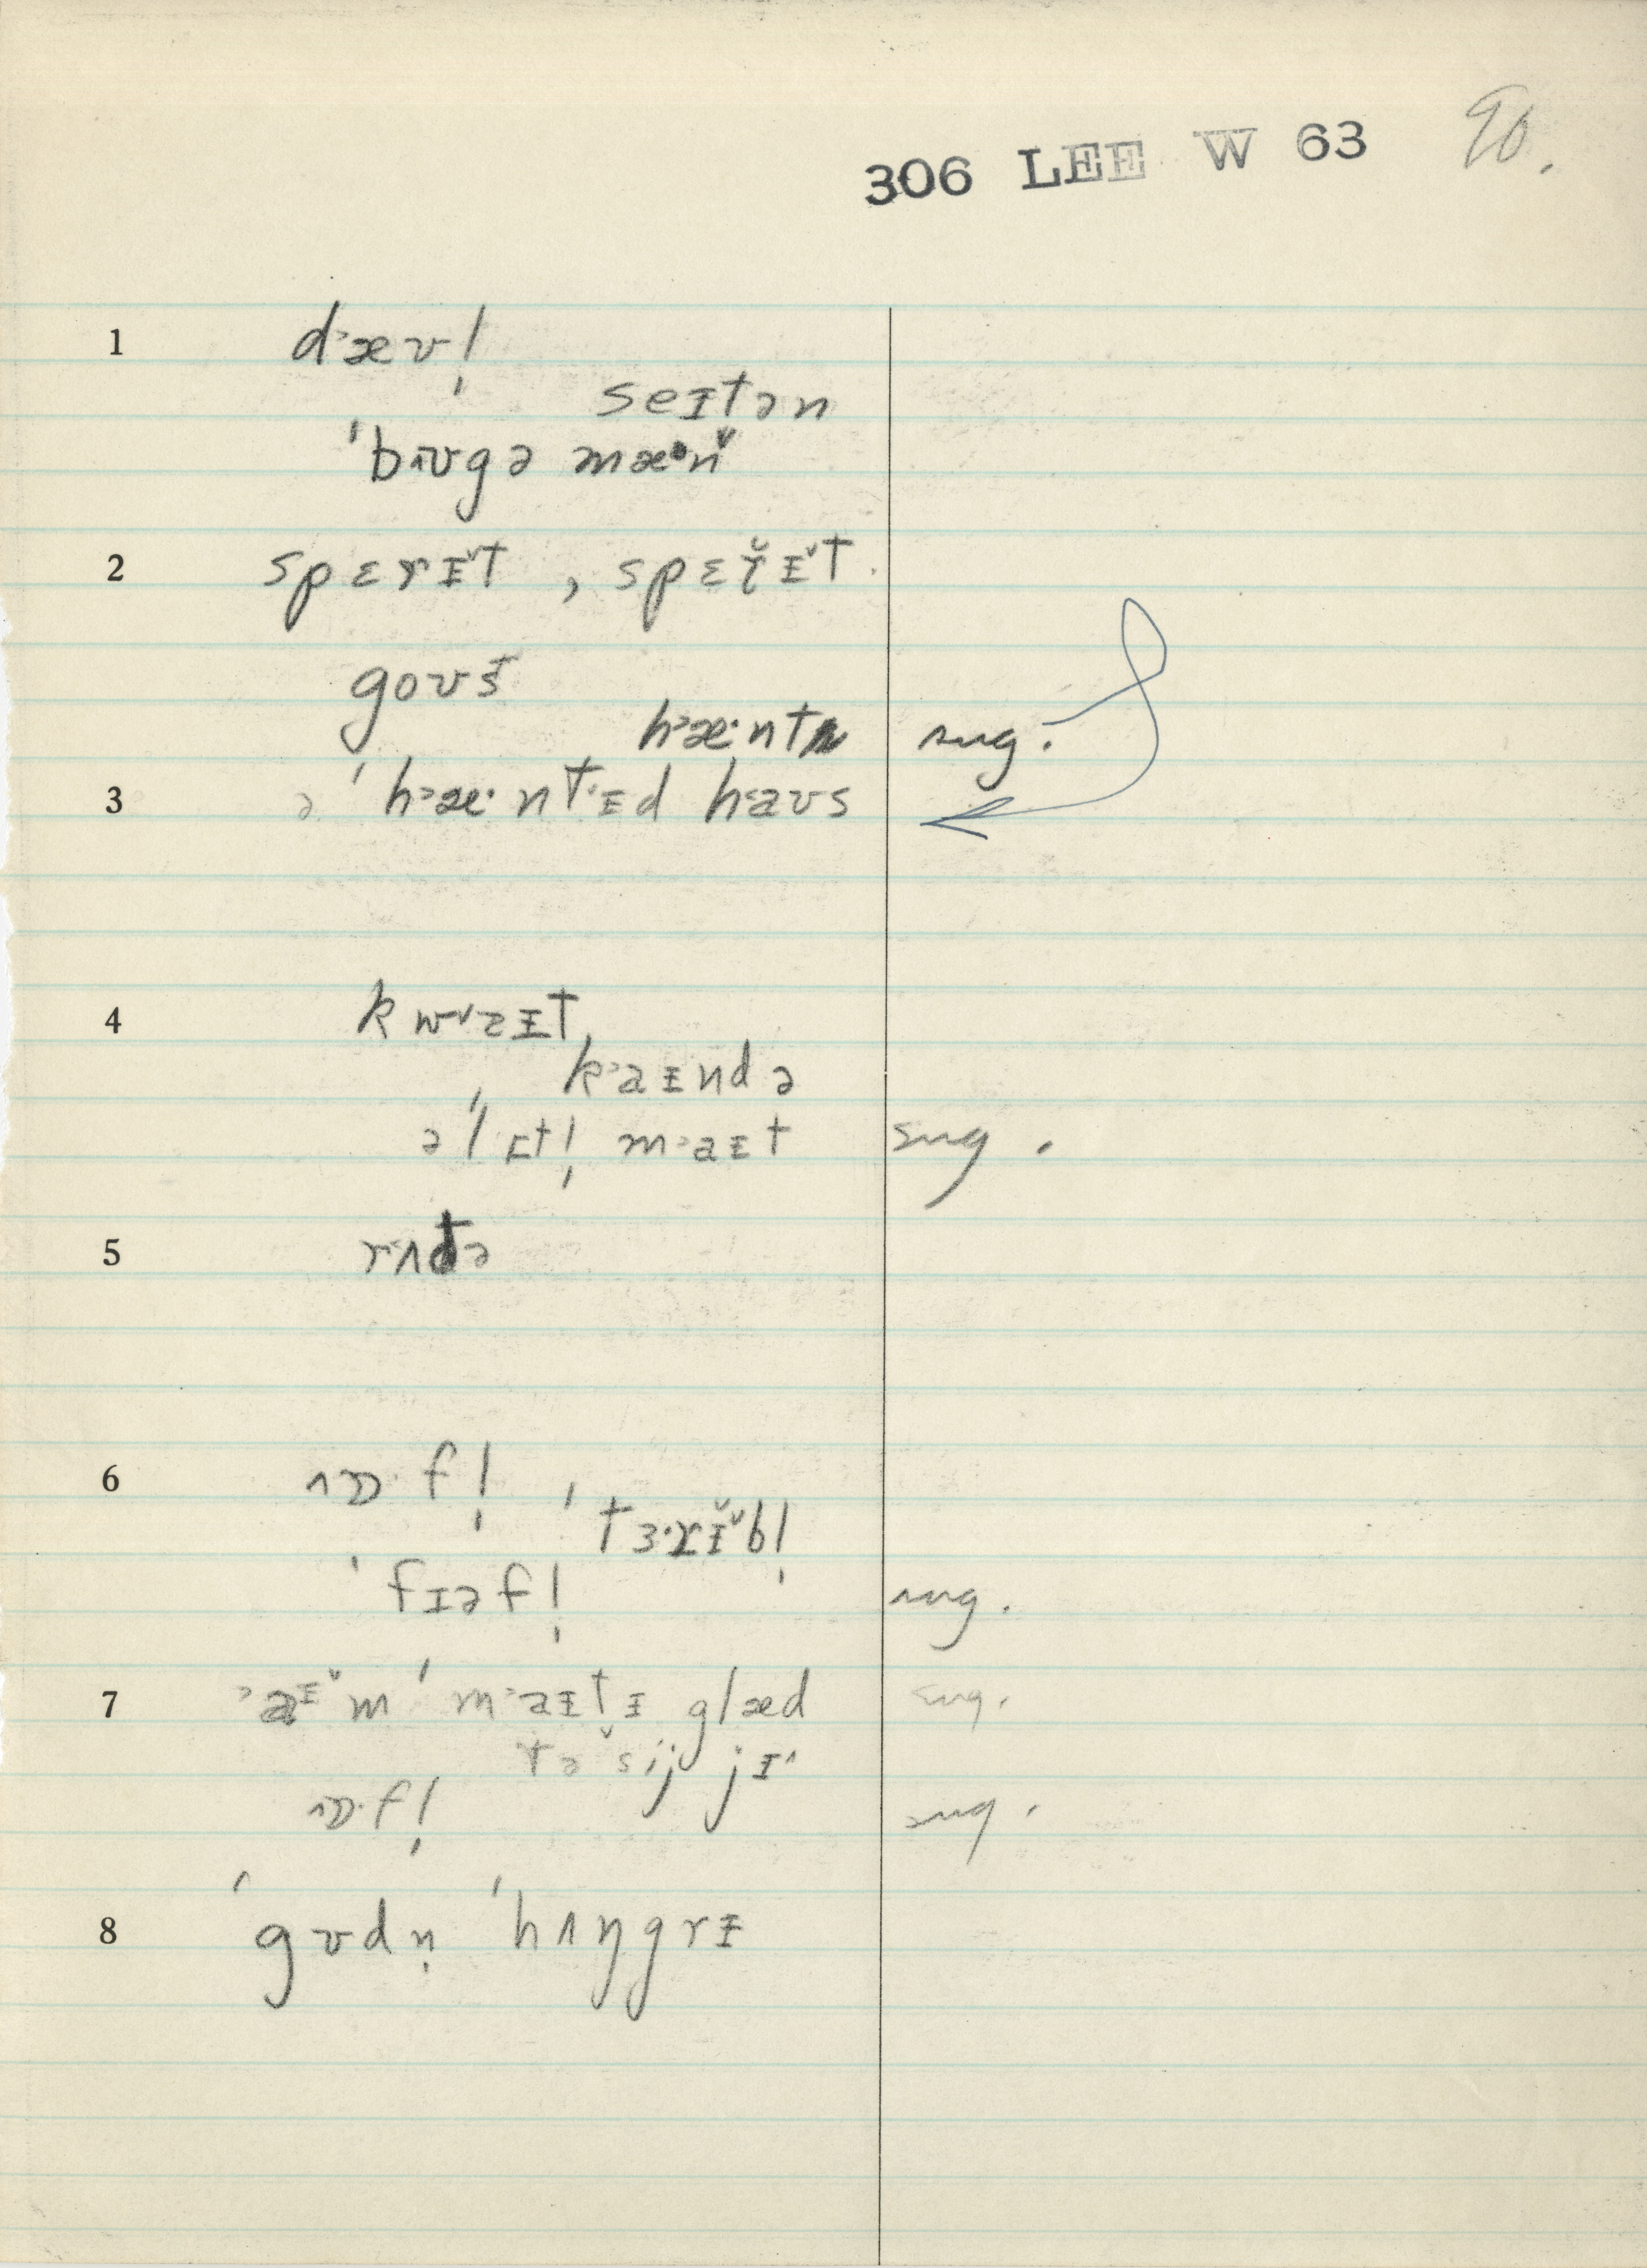 306 LEE W 63 90.
1 d˃æʊl̩
seɪtən
ˈbʌʊgə mæ·n̆
2 spɛrᵻ̌t , spɛř̆ᵻ̌t
goʊst
h˃æ·nt sug.
3 ə ˈh˃æ·ntᵻd haʊs
4 kwɑ˅ᵻt
k˃aᵻndə
ə ˈlᵻtl̩ m˃aᵻt sug.
5 rʌtə
6 ʌɒ·fl̩ ˈtɜ·rᵻ̌bl̩
ˈfɪəfl̩ sug.
7 ˃aᵻ̌m ˈm˃aᵻtᵻ glæd sug.
tə sij jᵻ^
ʌɒ·fl̩ sug.
8 ˈgʊdn̩ ˈhʌŋgrᵻ